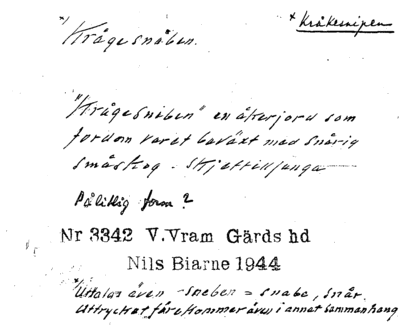 *) Krågesnåben.
* Kråkesnipen
"Krågesniben" en åkerjord som
fordom varet beväxt med snårig
småskog - Skjettiljunga
Pålitlig form?
Nr 3342 V.Vram Gärds hd
Nils Biarne 1944
*) Uttalas även -sneben = snabe, snår.
Uttrycket förekommer även i annat sammanhang